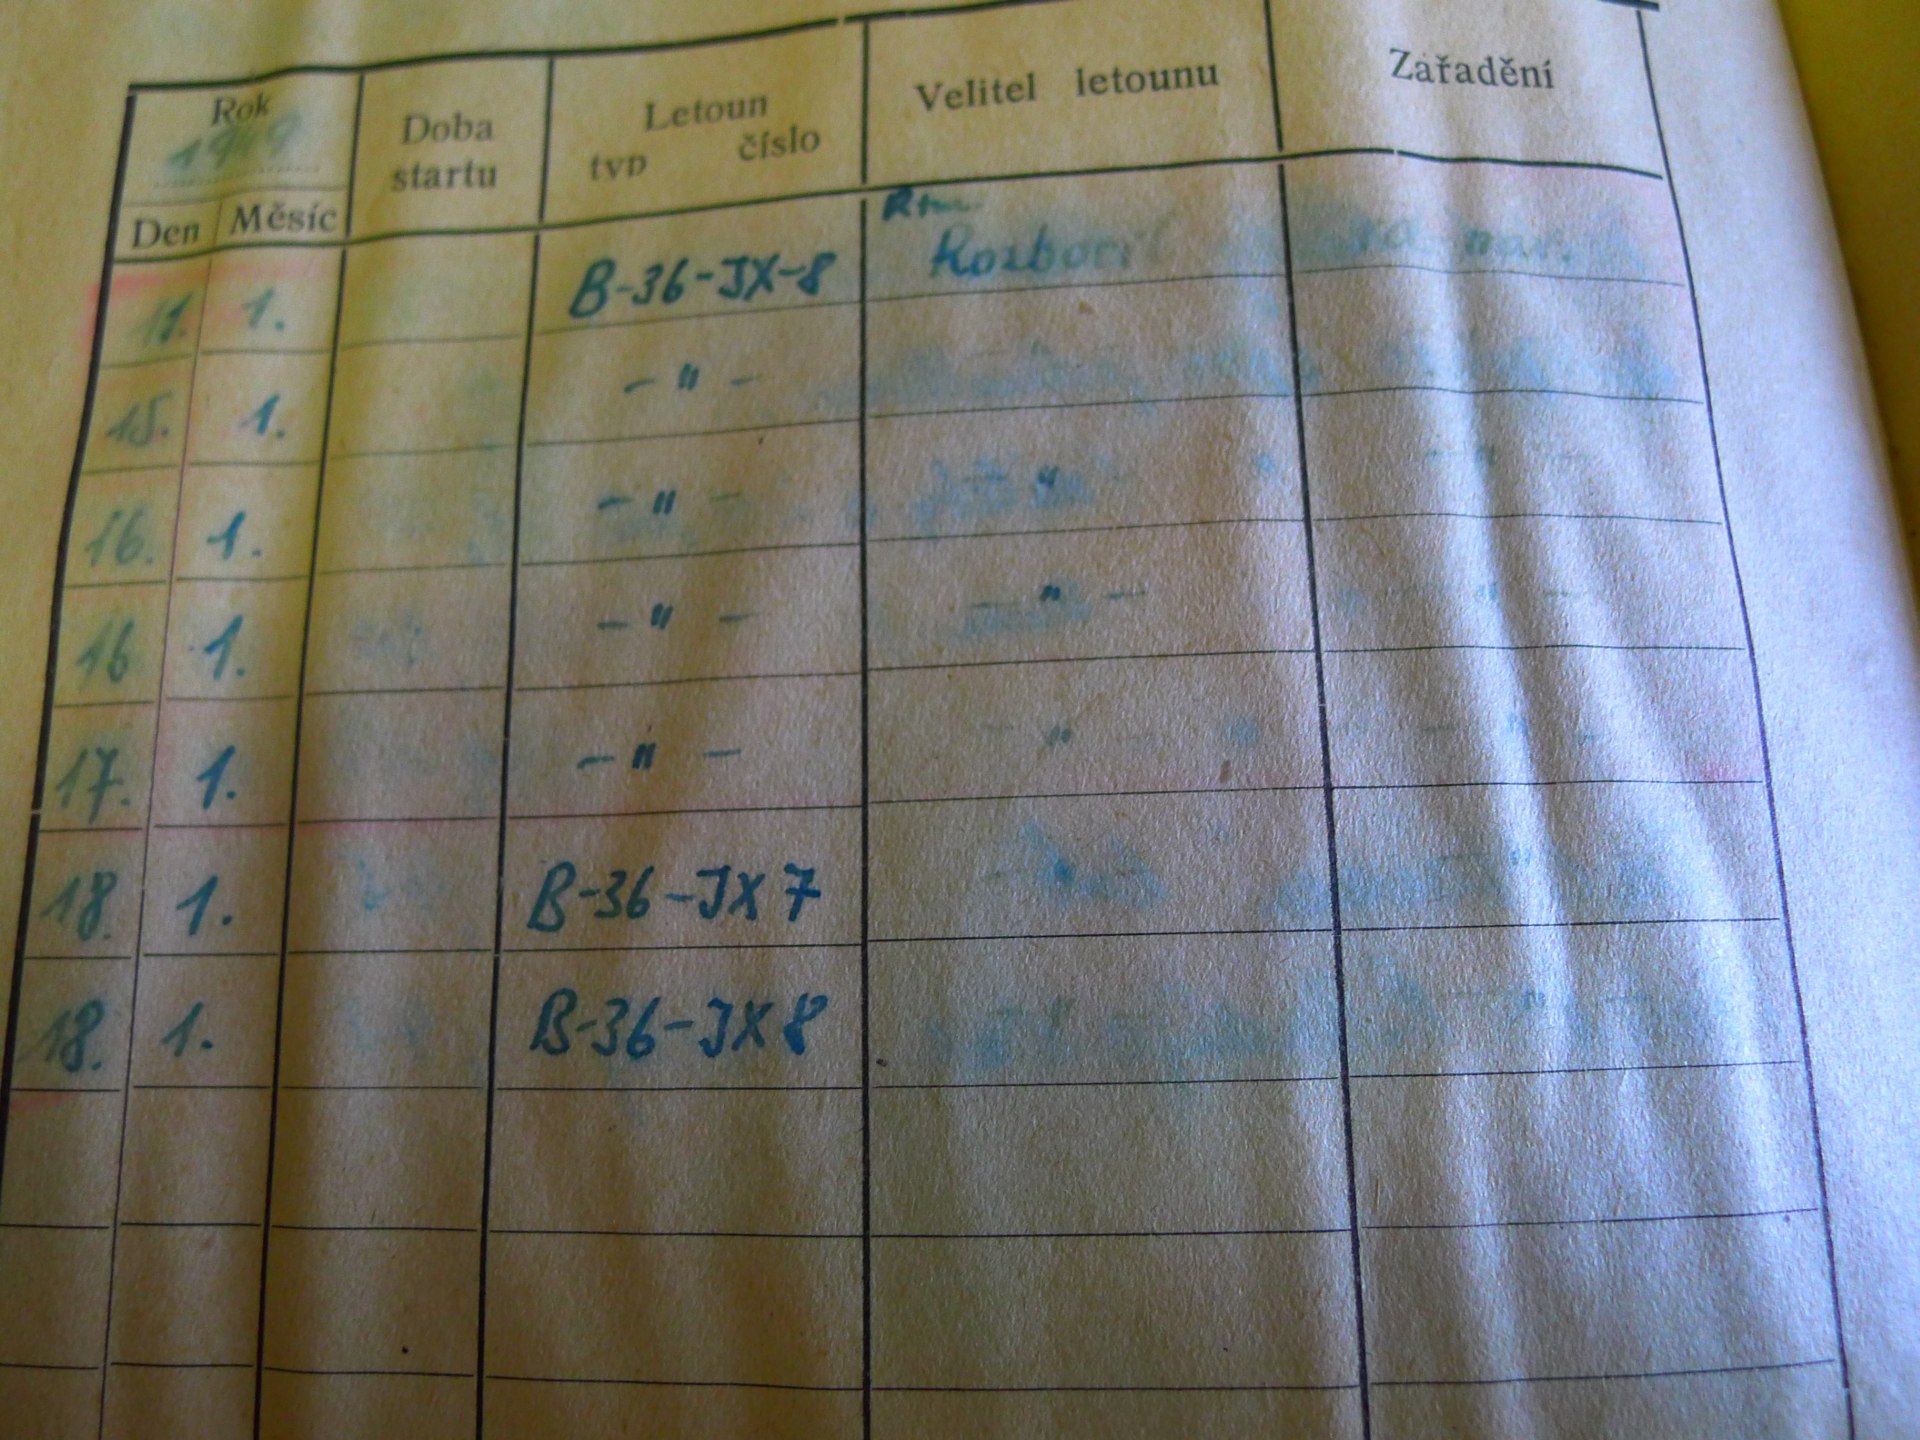 Rok
1949
Den Měsíc
Doba
startu
Letoun
typ číslo
Velitel letounu
Zařadění
11. 1. B-36-JX-8 Rozbořil
15. 1. - " -
16. 1. - " - "
16 1. - " - - " - "
17. 1. - " - "
18. 1. B-36-JX 7
18. 1. B-36-JX 8 "